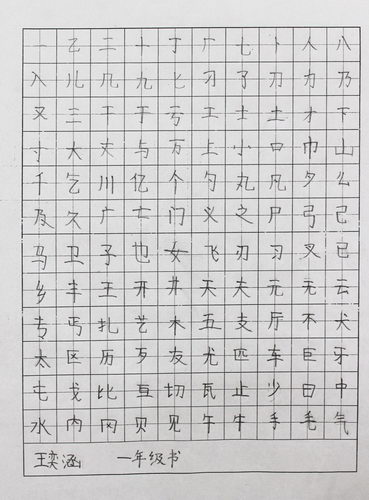 一乙二十丁厂七卜人八
入儿几九匕刁了刀力乃
又三干于亏工士土才下
寸大丈与万上小口巾山
千乞川亿个勺丸凡夕么
及久广亡门义之尸弓己
马卫子也女飞刃习叉已
乡丰王开井天夫元无云
专丐扎艺木五支厅不犬
太区历歹友尤匹车巨牙
屯戈比互切瓦止少日中
水内冈贝见午牛手毛气
王奕涵 一年级书